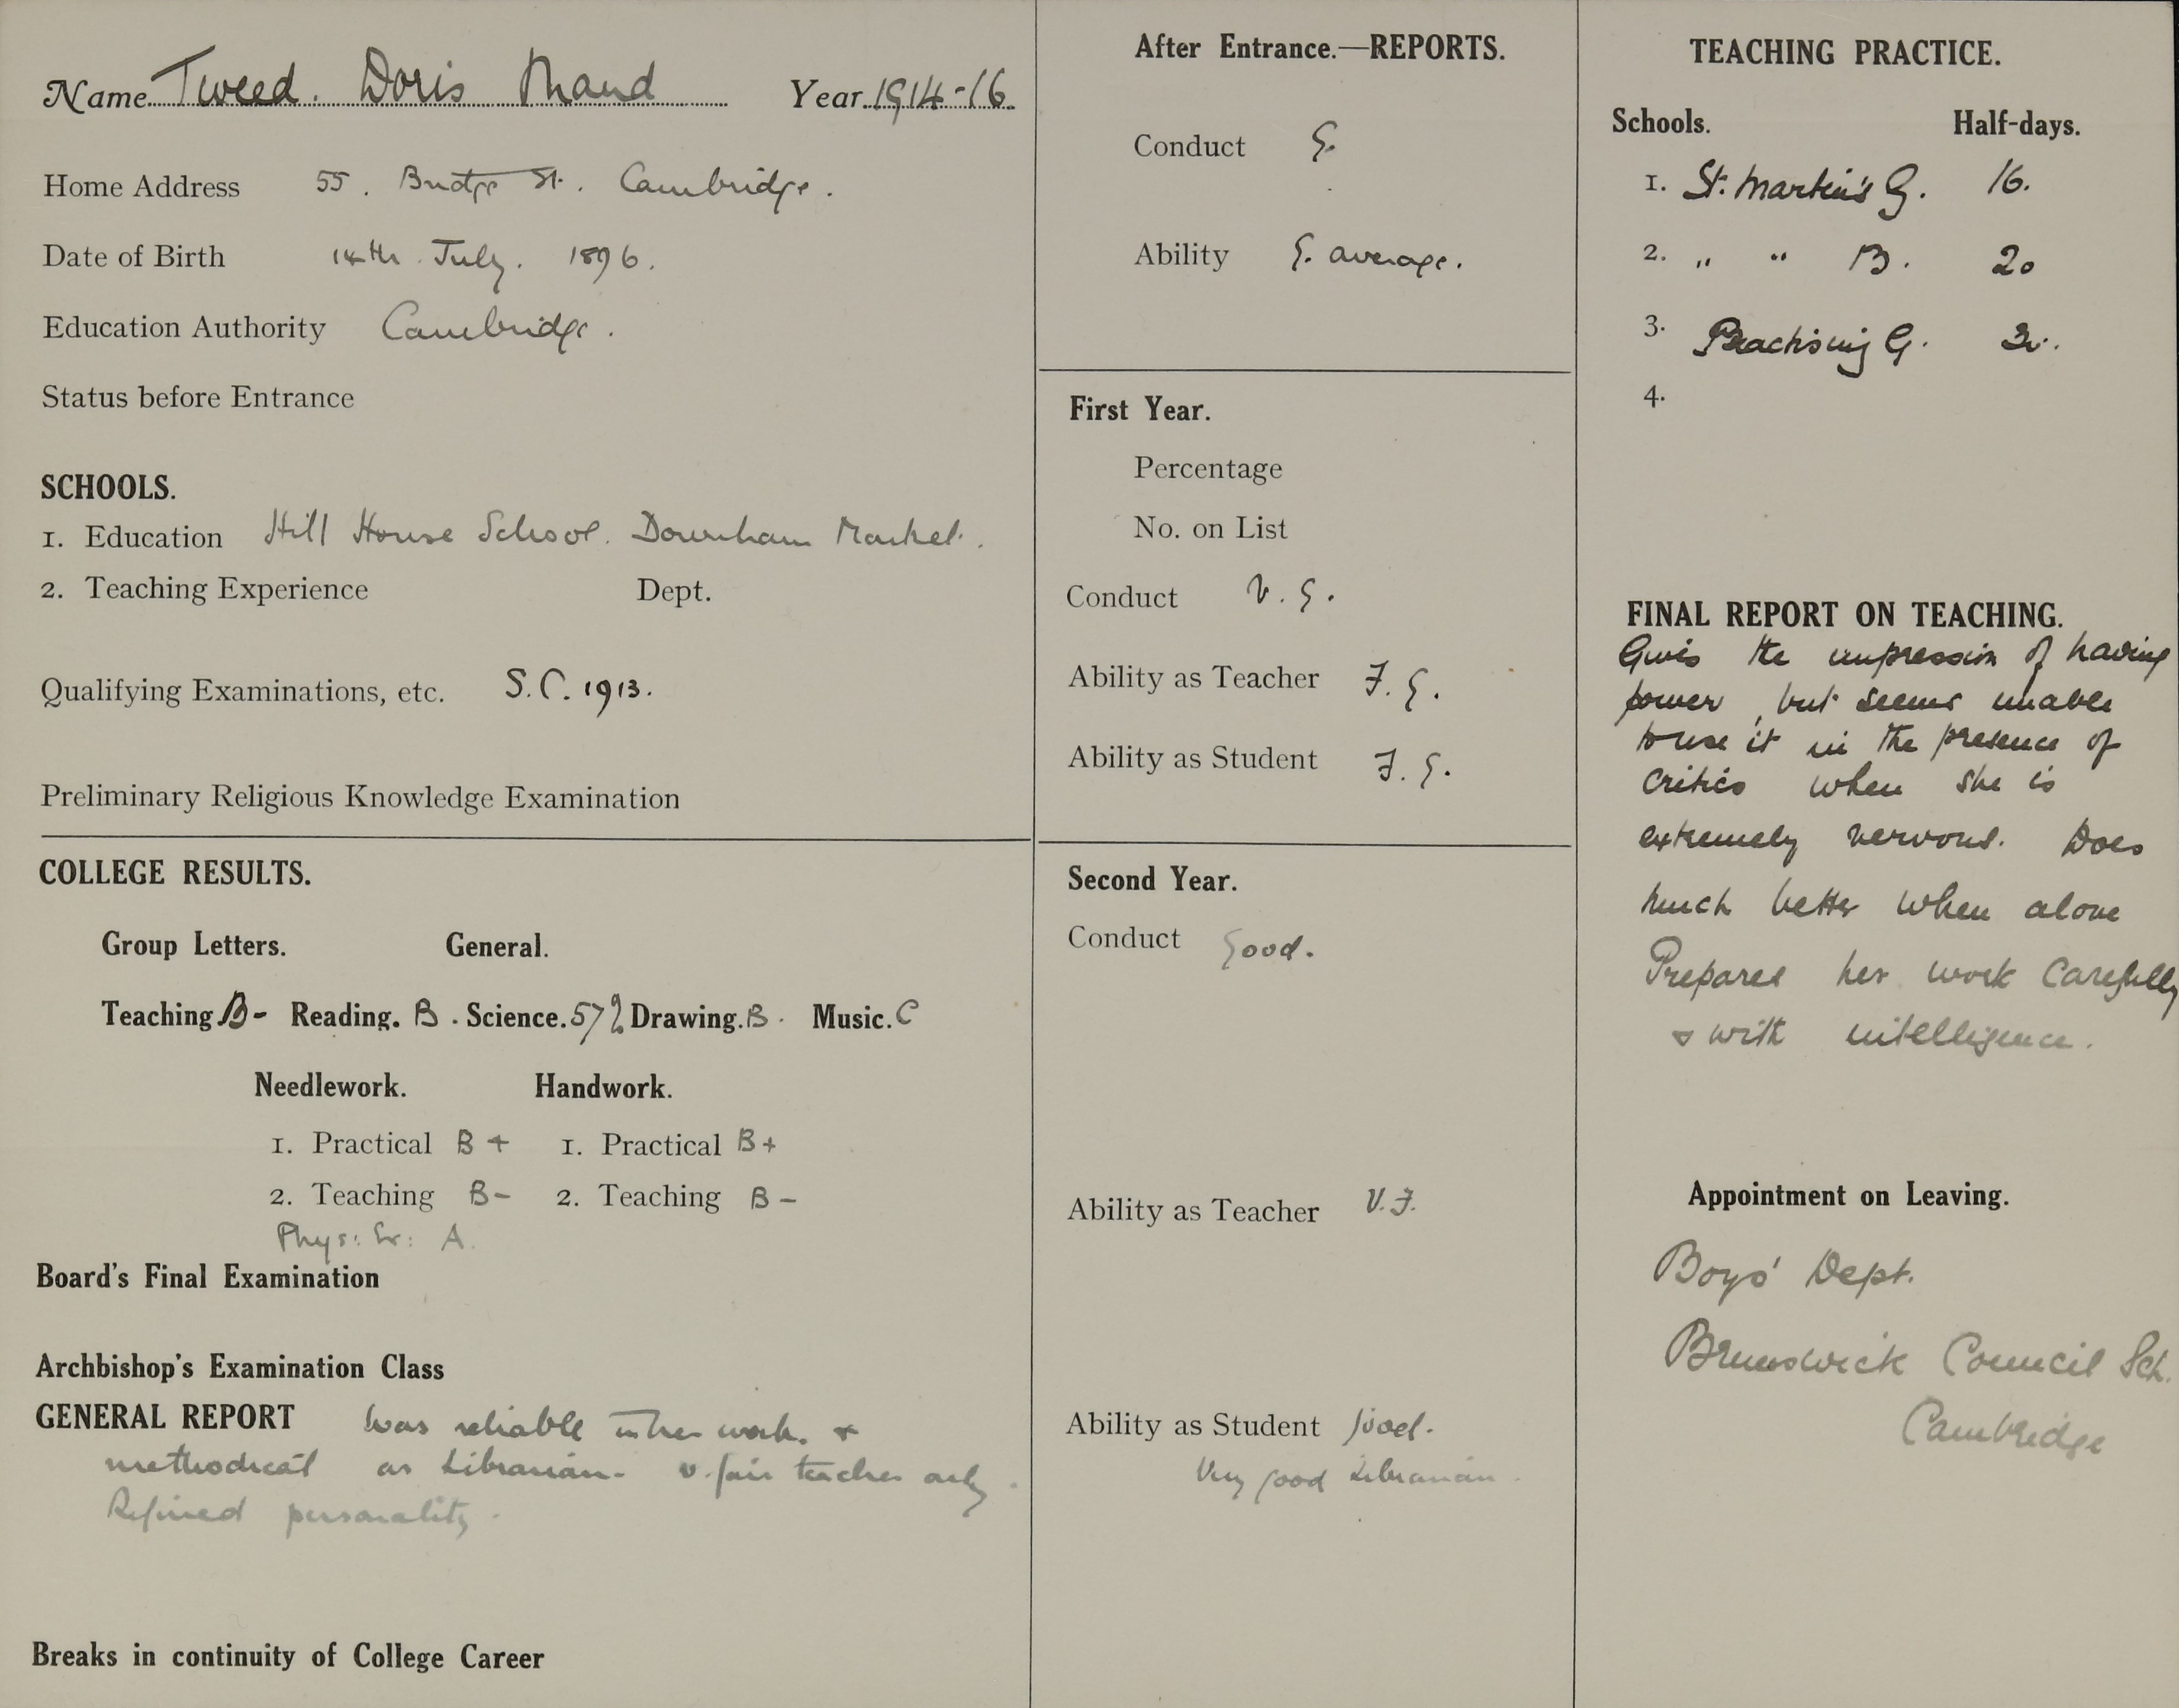 Name Tweed. Doris Maud Year 1914-16
Home Address 55. Bridge St. Cambridge.
Date of Birth 14th July. 1896.
Education Authority Cambridge.
Status before Entrance
SCHOOLS.
1. Education Hill House School. Downham Market.
2. Teaching Experience Dept.
Qualifying Examinations, etc. S.C. 1913.
Preliminary Religious Knowledge Examination
COLLEGE RESULTS.
Group Letters. General.
Teaching B- Reading. B. Science. 57 Drawing. B. Music. C
Needlework. Handwork.
1. Practical B+ 1. Practical B+
2. Teaching B- 2. Teaching B-
Phys: Ex: A.
Board's Final Examination
Archbishop's Examination Class
GENERAL REPORT Was reliable in her work. &
methodical as Librarian. v. fair teacher only.
Refined personality.
Breaks in continuity of College Career
After Entrance.—REPORTS.
Conduct G.
Ability G. average.
First Year.
Percentage
No. on List
Conduct V.G.
Ability as Teacher F.G.
Ability as Student F.G.
Second Year.
Conduct Good.
Ability as Teacher V.F.
Ability as Student Good.
Very good Librarian.
TEACHING PRACTICE.
Schools. Half-days.
1. St. Martin's G. 16.
2. " " B. 20
3. Practising G.
4.
FINAL REPORT ON TEACHING.
Gives the impression of having
power, but seems unable
to use it in the presence of
critics when she is
extremely nervous. Does
much better when alone
Prepares her work carefully
& with intelligence.
Appointment on Leaving.
Boys' Dept.
Brunswick Council Sch.
Cambridge